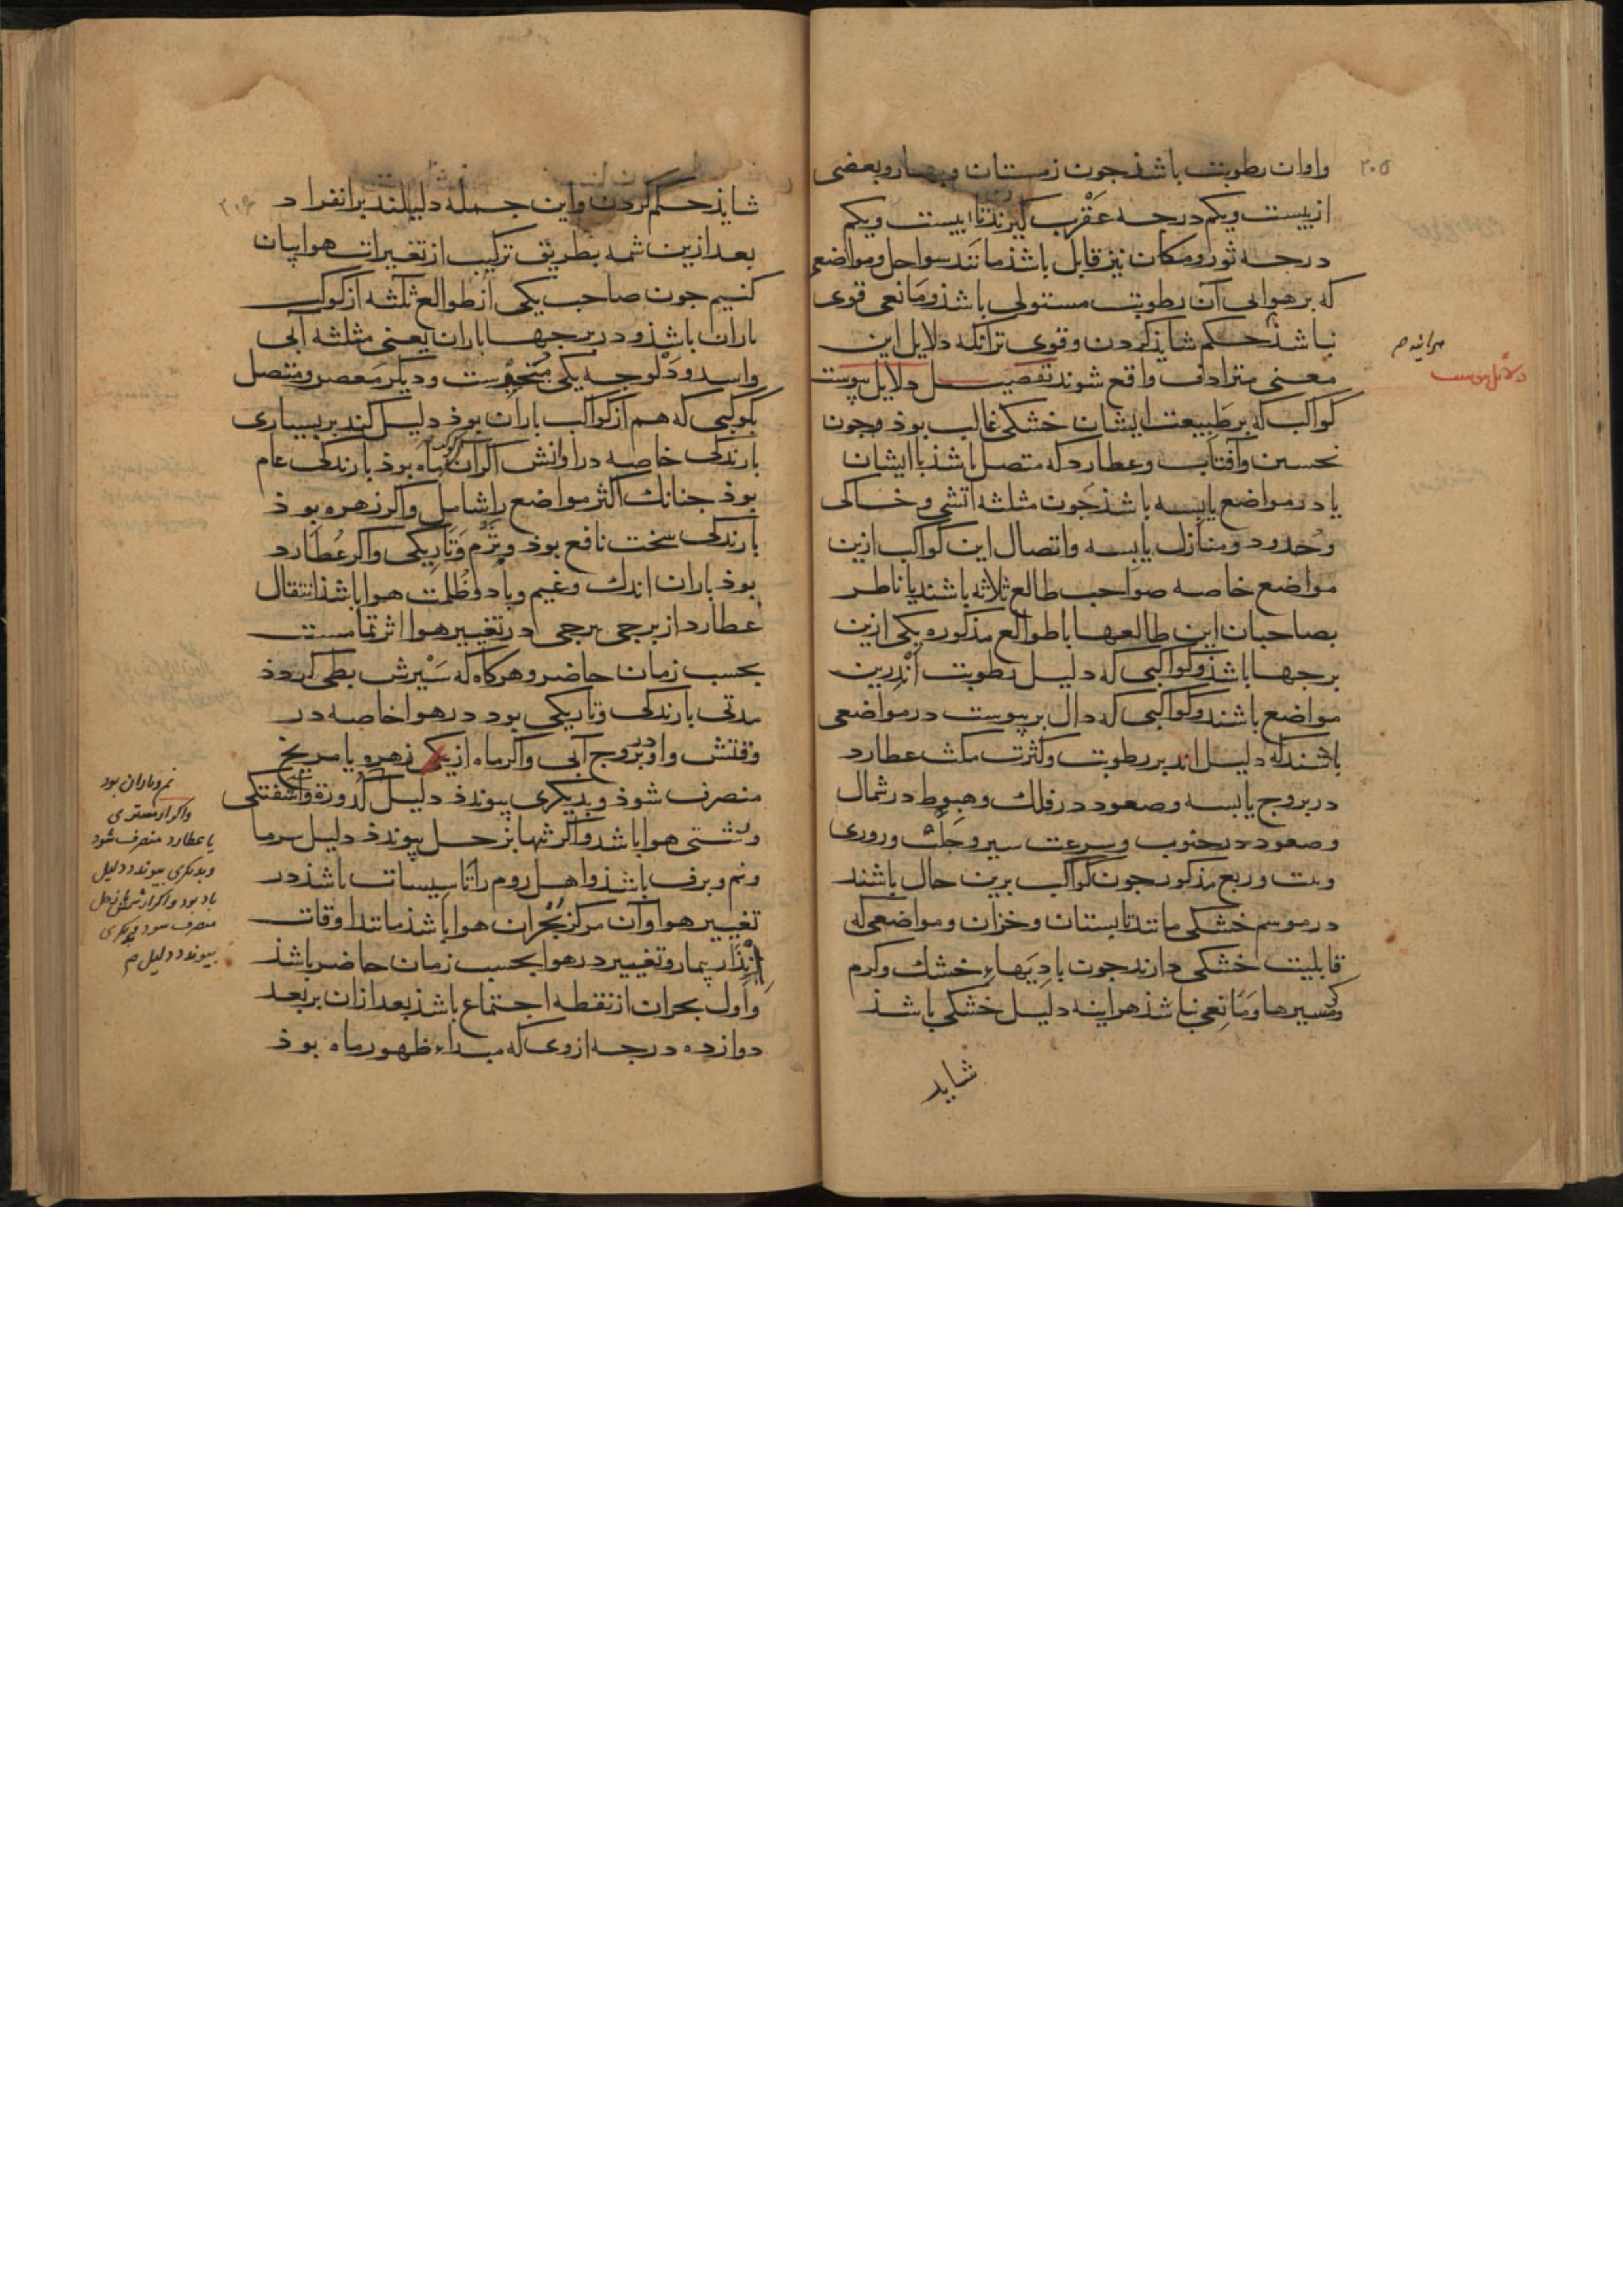 ٢٠٥
واوان رطوبت باشذ جون زمستان وبهار وبعضی
از بیست ویکم درجه عقرب کیرند تا بیست ویکم
درجه ثور ومکان نیز قابل باشذ مانند سواحل ومواضعی
که بر هوای آن رطوبت مستولی باشذ ومانعی قوی
نباشذ حکم شایذ کردن وقوی تر آنکه دلایل این
معنی مترادف واقع شوند تفصیل دلایل یبوست
کواکب که بر طبیعت ایشان خشکی غالب بوذ وجون
نحسین وآفتاب وعطارد که متصل باشذ با ایشان
یا در مواضع یابسه باشذ جون مثلثه آتشی وخاکی
وحدود ومنازل یابسه واتصال این کواکب ازین
مواضع خاصه صواحب طالع ثلاثه باشند یا ناظر
بصاحبان این طالعها با طوالع مذکوره یکی ازین
برجها باشذ وکواکبی که دلیل رطوبت اندرین
مواضع باشند وکواکبی که دال بر یبوست در مواضعی
باشند که دلیل اند بر رطوبت وکثرت مکث عطارد
در بروج یابسه وصعود در فلک وهبوط در شمال
وصعود در جنوب وسرعت سیر وروری
وبت وربع مذکور جون کواکب برین حال باشند
در موسم خشکی مانند تابستان وخزان ومواضعی که
قابلیت خشکی دارند جون بادیهاء خشک وکرم
وکرمسیرها ومانعی نباشذ هراینه دلیل خشکی باشذ
شاید
دلایل یبوست
٢٠٦
شایذ حکم کردن واین جمله دلیلند بر انفراد
بعد ازین شمه بطریق ترکیب از تغیرات هوا بیان
کنیم جون صاحب یکی از طوالع ثلثه از کوکب
باران باشذ ودر برجها باران یعنی مثلثه آبی
واسد ودلو جه یکی متحیرست ودیکر معصر ومتصل
بکوکبی که هم از کواکب باران بوذ دلیل کند بر بسیاری
بارندکی خاصه در اوانش اکر آن کوکب ماه بوذ بارندکی عام
بوذ جنانک اکثر مواضع را شامل واکر زهره بوذ
بارندکی سخت نافع بوذ وتژم وتاریکی واکر عطارد
بوذ باران اندک وغیم وباد وظلمت هوا باشذ انتقال
عطارد از برجی ببرجی در تغییر هوا اثر تمامست
بحسب زمان حاضر وهرکاه که سیرش بطی کردذ
مدتی بارندکی وتاریکی بود در هوا خاصه در
وقتش واو در بروج آبی واکر ماه از یکی زهره یا مریخ
منصرف شوذ وبدیکری پیوندذ دلیل کدورة وآشفتکی
وزشتی هوا باشد واکر تنها بزحل پیوندذ دلیل سرما
ونم وبرف باشذ واهل روم را تاسیسات باشذ در
تغییر هوا وآن مرکز بحران هوا باشذ مانند اوقات
انذار بیمار وتغییر در هوا بحسب زمان حاضر باشذ
واول بحران از نقطه اجتماع باشذ بعد ازان بر بعد
دوازده درجه از وی که مبداء ظهور ماه بوذ
نم وباران بود
واکر از مشتری
یا عطارد منصرف شود
وبدیکری پیوندد دلیل
باد بود واکر از زحل
منصرف شود وبدیکری
پیوندد دلیل